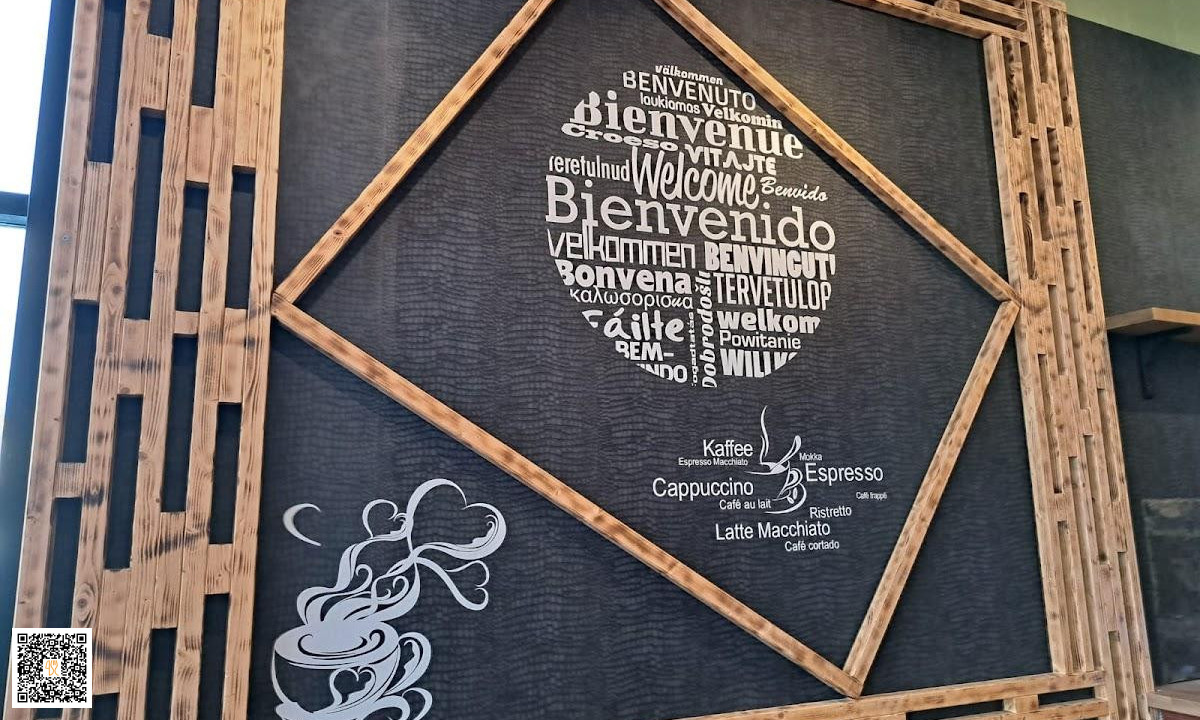 välkommen
BENVENUTO
laukiamas Velkomin
Bienvenue
Croeso VITAJTE
Welcome Benvido
Bienvenido
velkommen BENVINGUT
Bonvena TERVETULO
καλωσορισμα
Fáilte welkom
Dobrodošli
Powitanie
BEM-
WILLK
Kaffee
Mokka
Espresso Macchiato
Espresso
Cappuccino
Café frappé
Café au lait
Ristretto
Latte Macchiato
Café cortado